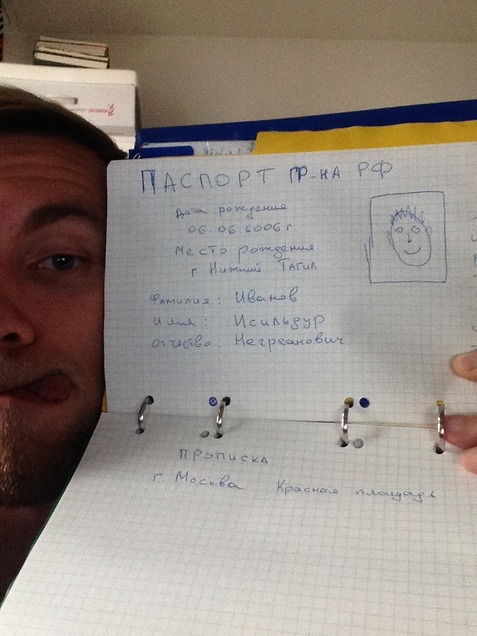 ПАСПОРТ ГР-НА РФ
Дата рождения
06.06.6006 г
Место рождения
г Нижний Тагил
Фамилия: Иванов
Имя: Исильдур
Отчество: Негреанович
ПРОПИСКА
г. Москва Красная площадь